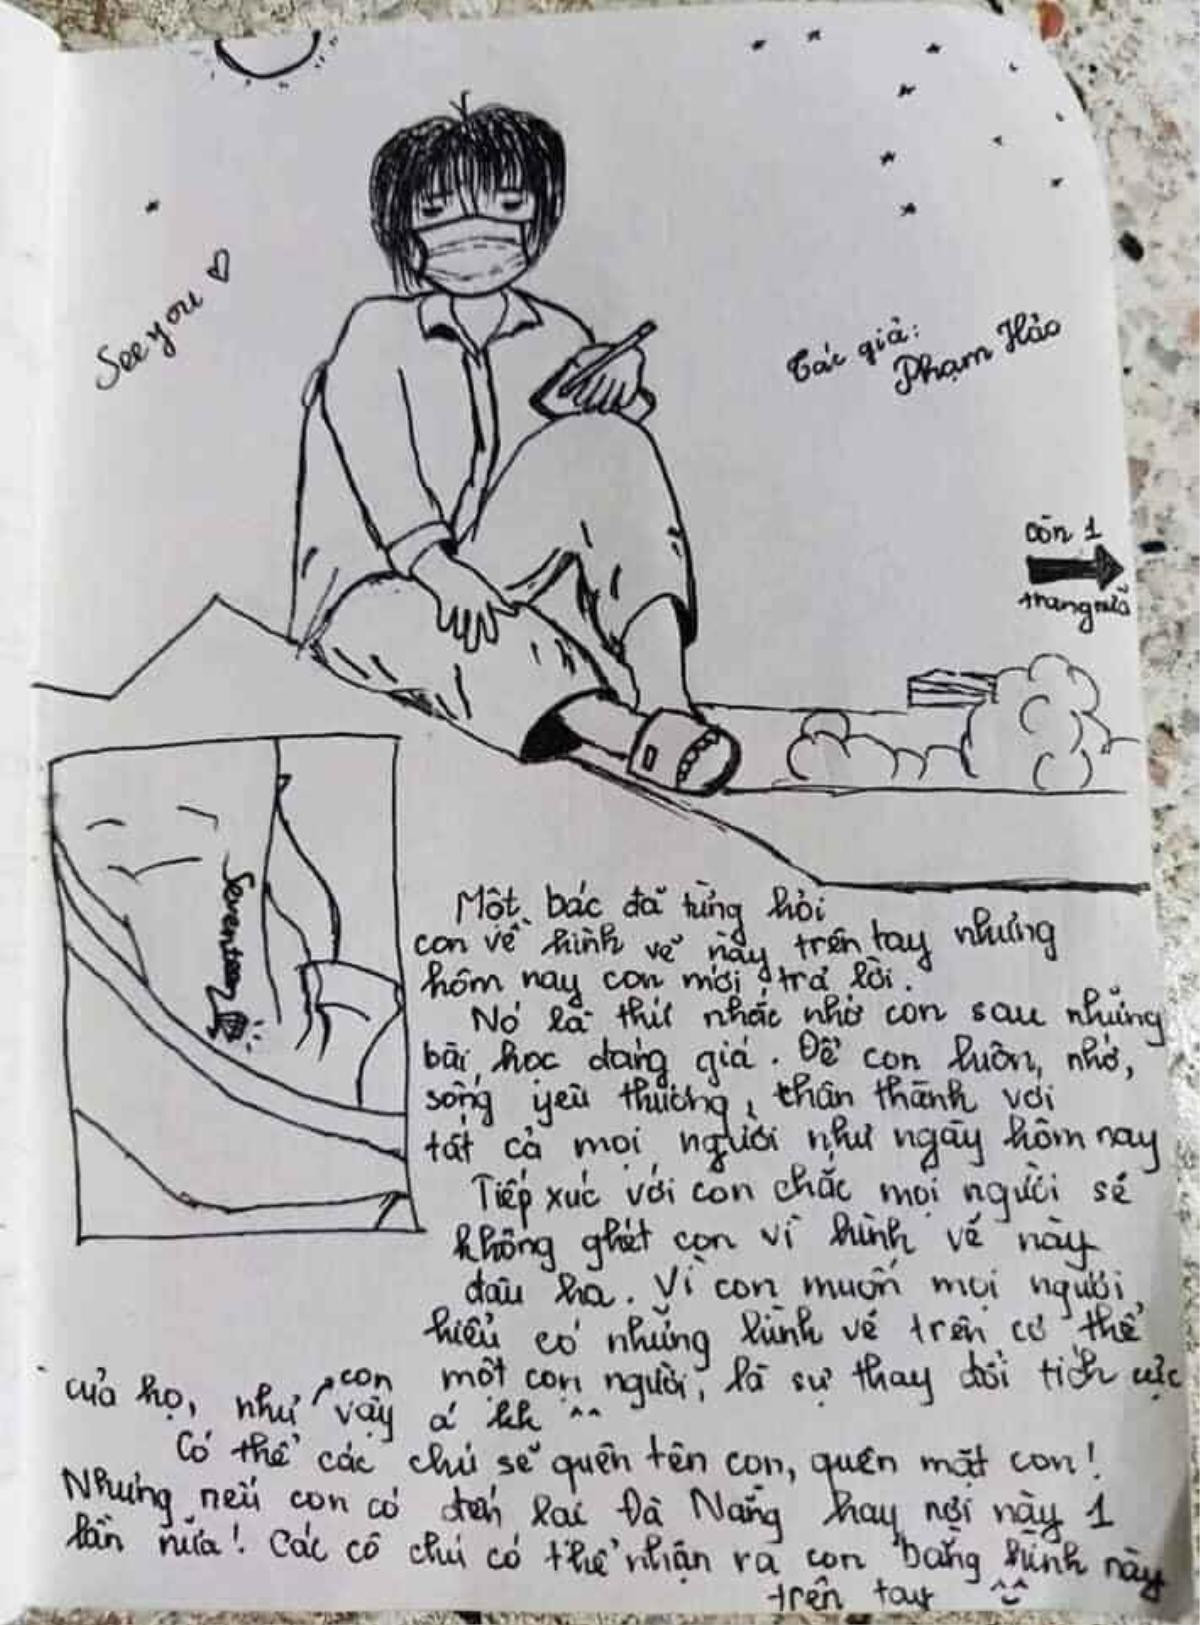 See you ♡
Tác giả:
Phạm Hảo
còn 1
trang nữa
Seventeen
Một bác đã từng hỏi
con về hình vẽ này trên tay nhưng
hôm nay con mới trả lời.
Nó là thứ nhắc nhở con sau những
bài học đáng giá. Để con luôn nhớ,
sống yêu thương, chân thành với
tất cả mọi người như ngày hôm nay
Tiếp xúc với con chắc mọi người sẽ
không ghét con vì hình vẽ này
đâu ha. Vì con muốn mọi người
hiểu có những hình vẽ trên cơ thể
một con người, là sự thay đổi tích cực
của họ, như con vậy á kk ^^
Có thể các chú sẽ quên tên con, quên mặt con!
Nhưng nếu con có đến lại Đà Nẵng hay nơi này 1
lần nữa! Các cô chú có thể nhận ra con bằng hình này
trên tay ^^